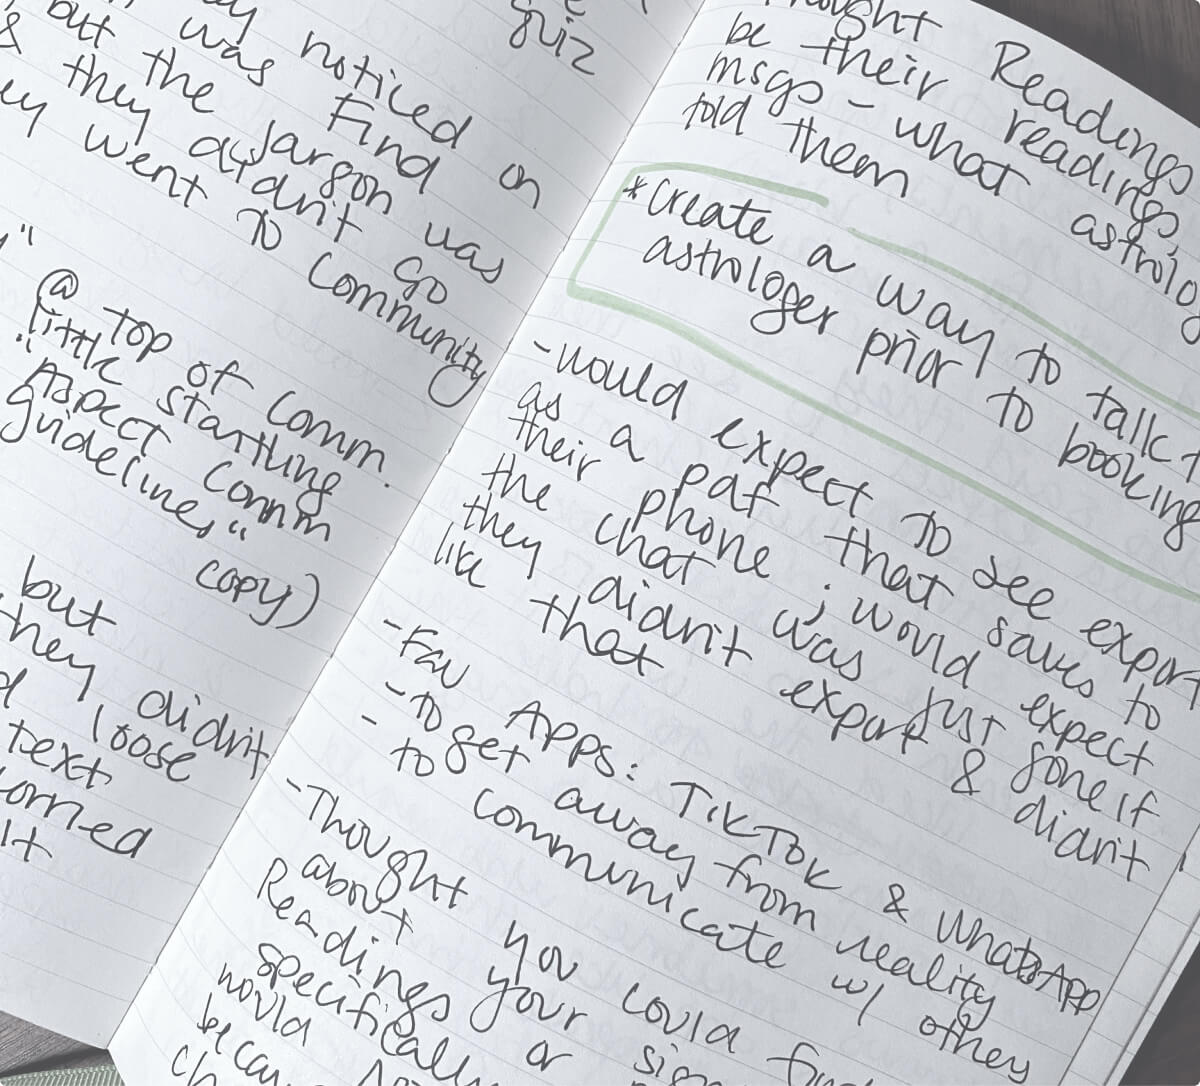 quiz
noticed on
was Find
but the Jargon was
& they didn't go
went to community
"
@ top of comm.
little startling
"Aspect Comm
guidelines"
copy)
but
they didn't
loose
text
It
thought Readings
be their readings
msgs - what
told them
*create a way to talk
astrologer prior to booking
-would expect to see export
as a pdf that saves to
their phone; would expect
the chat was just gone if
they didn't export & didn't
like that
-Fav Apps: TikTok & WhatsApp
-to get away from reality
- to communicate w/ others
-Thought you could
about your
Readings or
specifically
would